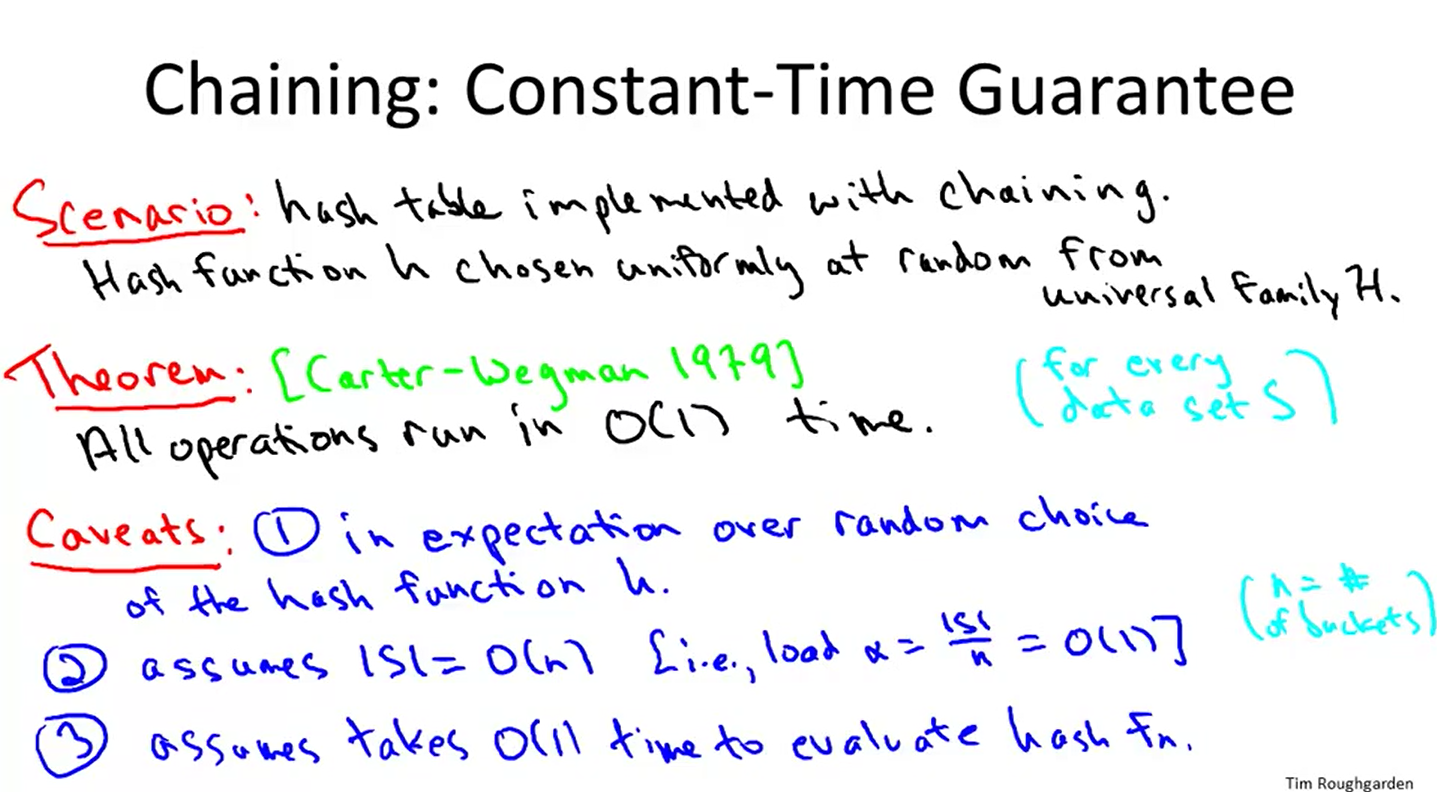 Chaining: Constant-Time Guarantee
Scenario: hash table implemented with chaining.
Hash function h chosen uniformly at random from
universal family H.
Theorem: [Carter-Wegman 1979]
All operations run in O(1) time.
(for every
data set S)
Caveats: ① in expectation over random choice
of the hash function h.
② assumes |S| = O(n) [i.e., load α = |S|/n = O(1)]
(n = #
of buckets)
③ assumes takes O(1) time to evaluate hash fn.
Tim Roughgarden